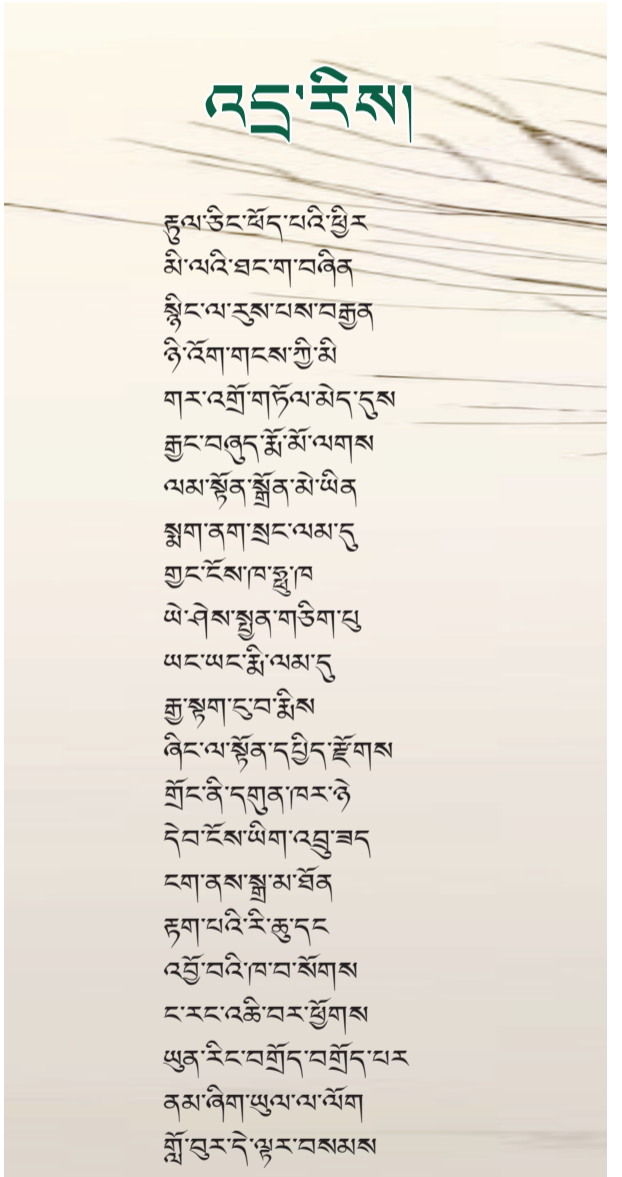 འདྲ་རིས།
རྟུལ་ཅིང་ཕོད་པའི་ཕྱིར
མི་ལའི་ཐང་ག་བཞིན
སྙིང་ལ་རུས་པས་བརྒྱན
ཉི་འོག་གངས་ཀྱི་མི
གར་འགྲོ་གཏོལ་མེད་དུས
རྒྱང་བཞུད་རྨོ་མོ་ལགས
ལམ་སྟོན་སྒྲོན་མེ་ཡིན
སྨག་ནག་སྲང་ལམ་དུ
གྱང་ངོས་ཁ་ཧྥུ་ཁ
ཡེ་ཤེས་སྤྱན་གཅིག་པུ
ཡང་ཡང་རྨི་ལམ་དུ
རྒྱ་སྟག་ངུ་བ་རྨིས
ཞིང་ལ་སྟོན་དཔྱིད་རྫོགས
གྲོང་ནི་དགུན་ཁར་ཉེ
དེབ་ངོས་ཡིག་འབྲུ་ཟད
ངག་ནས་སྒྲ་མ་ཐོན
རྟག་པའི་རི་ཆུ་དང
འབྱོ་བའི་ཁ་བ་སོགས
ང་རང་འཆི་བར་ཕྱོགས
ཡུན་རིང་བགྲོད་བགྲོད་པར
ནམ་ཞིག་ཡུལ་ལ་ལོག
གློ་བུར་དེ་ལྟར་བསམས